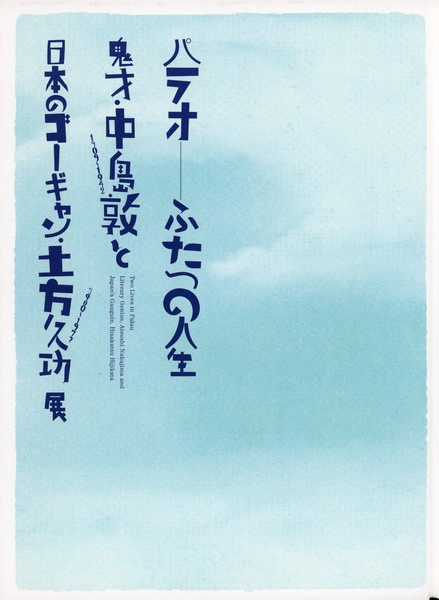 パラオ──ふたつの人生
鬼才・中島敦と
1909-1942
日本のゴーギャン・土方久功 展
1900-1977
Two Lives in Palau
Literary Genius, Atsushi Nakajima and
Japan's Gauguin, Hisakatsu Hijikata